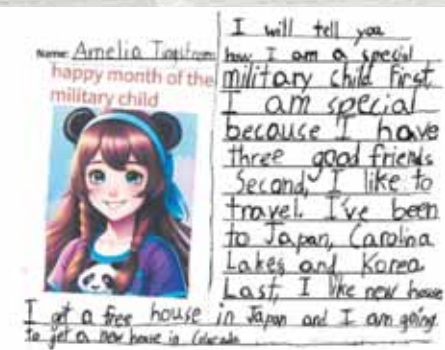 Name: Amelia
happy month of the
military child
I will tell you
how I am a special
military child First,
I am special
because I have
three good friends
Second, I like to
travel. I've been
to Japan, Carolina
Lakes and Korea
Last, I like new house
I get a free house in Japan and I am going
to get a new house in Colorado